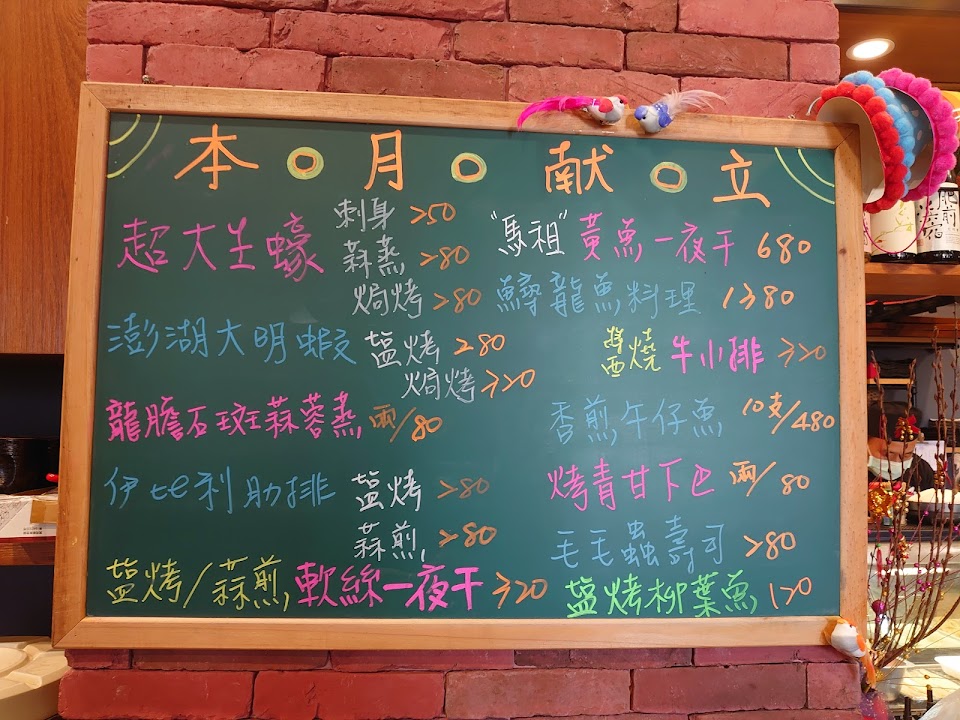 本月献立
超大生蠔 刺身 250
蒜蒸 280
焗烤 280
澎湖大明蝦 塩烤 280
焗烤 320
龍膽石斑蒜蓉蒸 兩/80
伊比利肋排 塩烤 280
蒜煎 280
塩烤/蒜煎 軟絲一夜干 320
"馬祖"黃魚一夜干 680
鱘龍魚料理 1280
醬燒牛小排 320
香煎午仔魚 10支/480
烤青甘下巴 兩/80
毛毛蟲壽司 280
塩烤柳葉魚 120